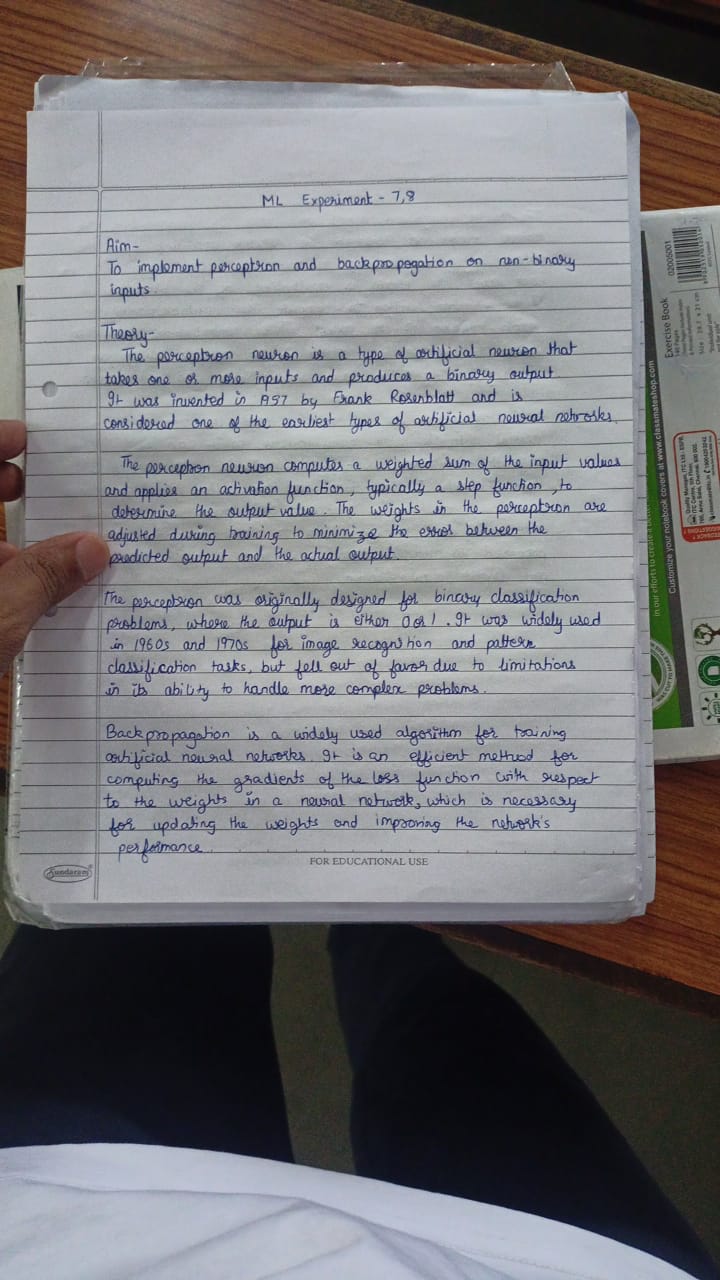 ML Experiment - 7,8
Aim-
To implement perceptron and backpropogation on non-binary
inputs.
Theory-
The perceptron neuron is a type of artificial neuron that
takes one or more inputs and produces a binary output
It was invented in 1957 by Frank Rosenblatt and is
considered one of the earliest types of artificial neural networks.
The perceptron neuron computes a weighted sum of the input values
and applies an activation function, typically a step function, to
determine the output value. The weights in the perceptron are
adjusted during training to minimize the error between the
predicted output and the actual output.
The perceptron was originally designed for binary classification
problems, where the output is either 0 or 1. It was widely used
in 1960s and 1970s for image recognition and pattern
classification tasks, but fell out of favor due to limitations
in its ability to handle more complex problems.
Backpropagation is a widely used algorithm for training
artificial neural networks. It is an efficient method for
computing the gradients of the loss function with respect
to the weights in a neural network, which is necessary
for updating the weights and improving the network's
performance.
FOR EDUCATIONAL USE
Sundaram
Exercise Book
02005001
Customize your notebook covers at www.classmateshop.com